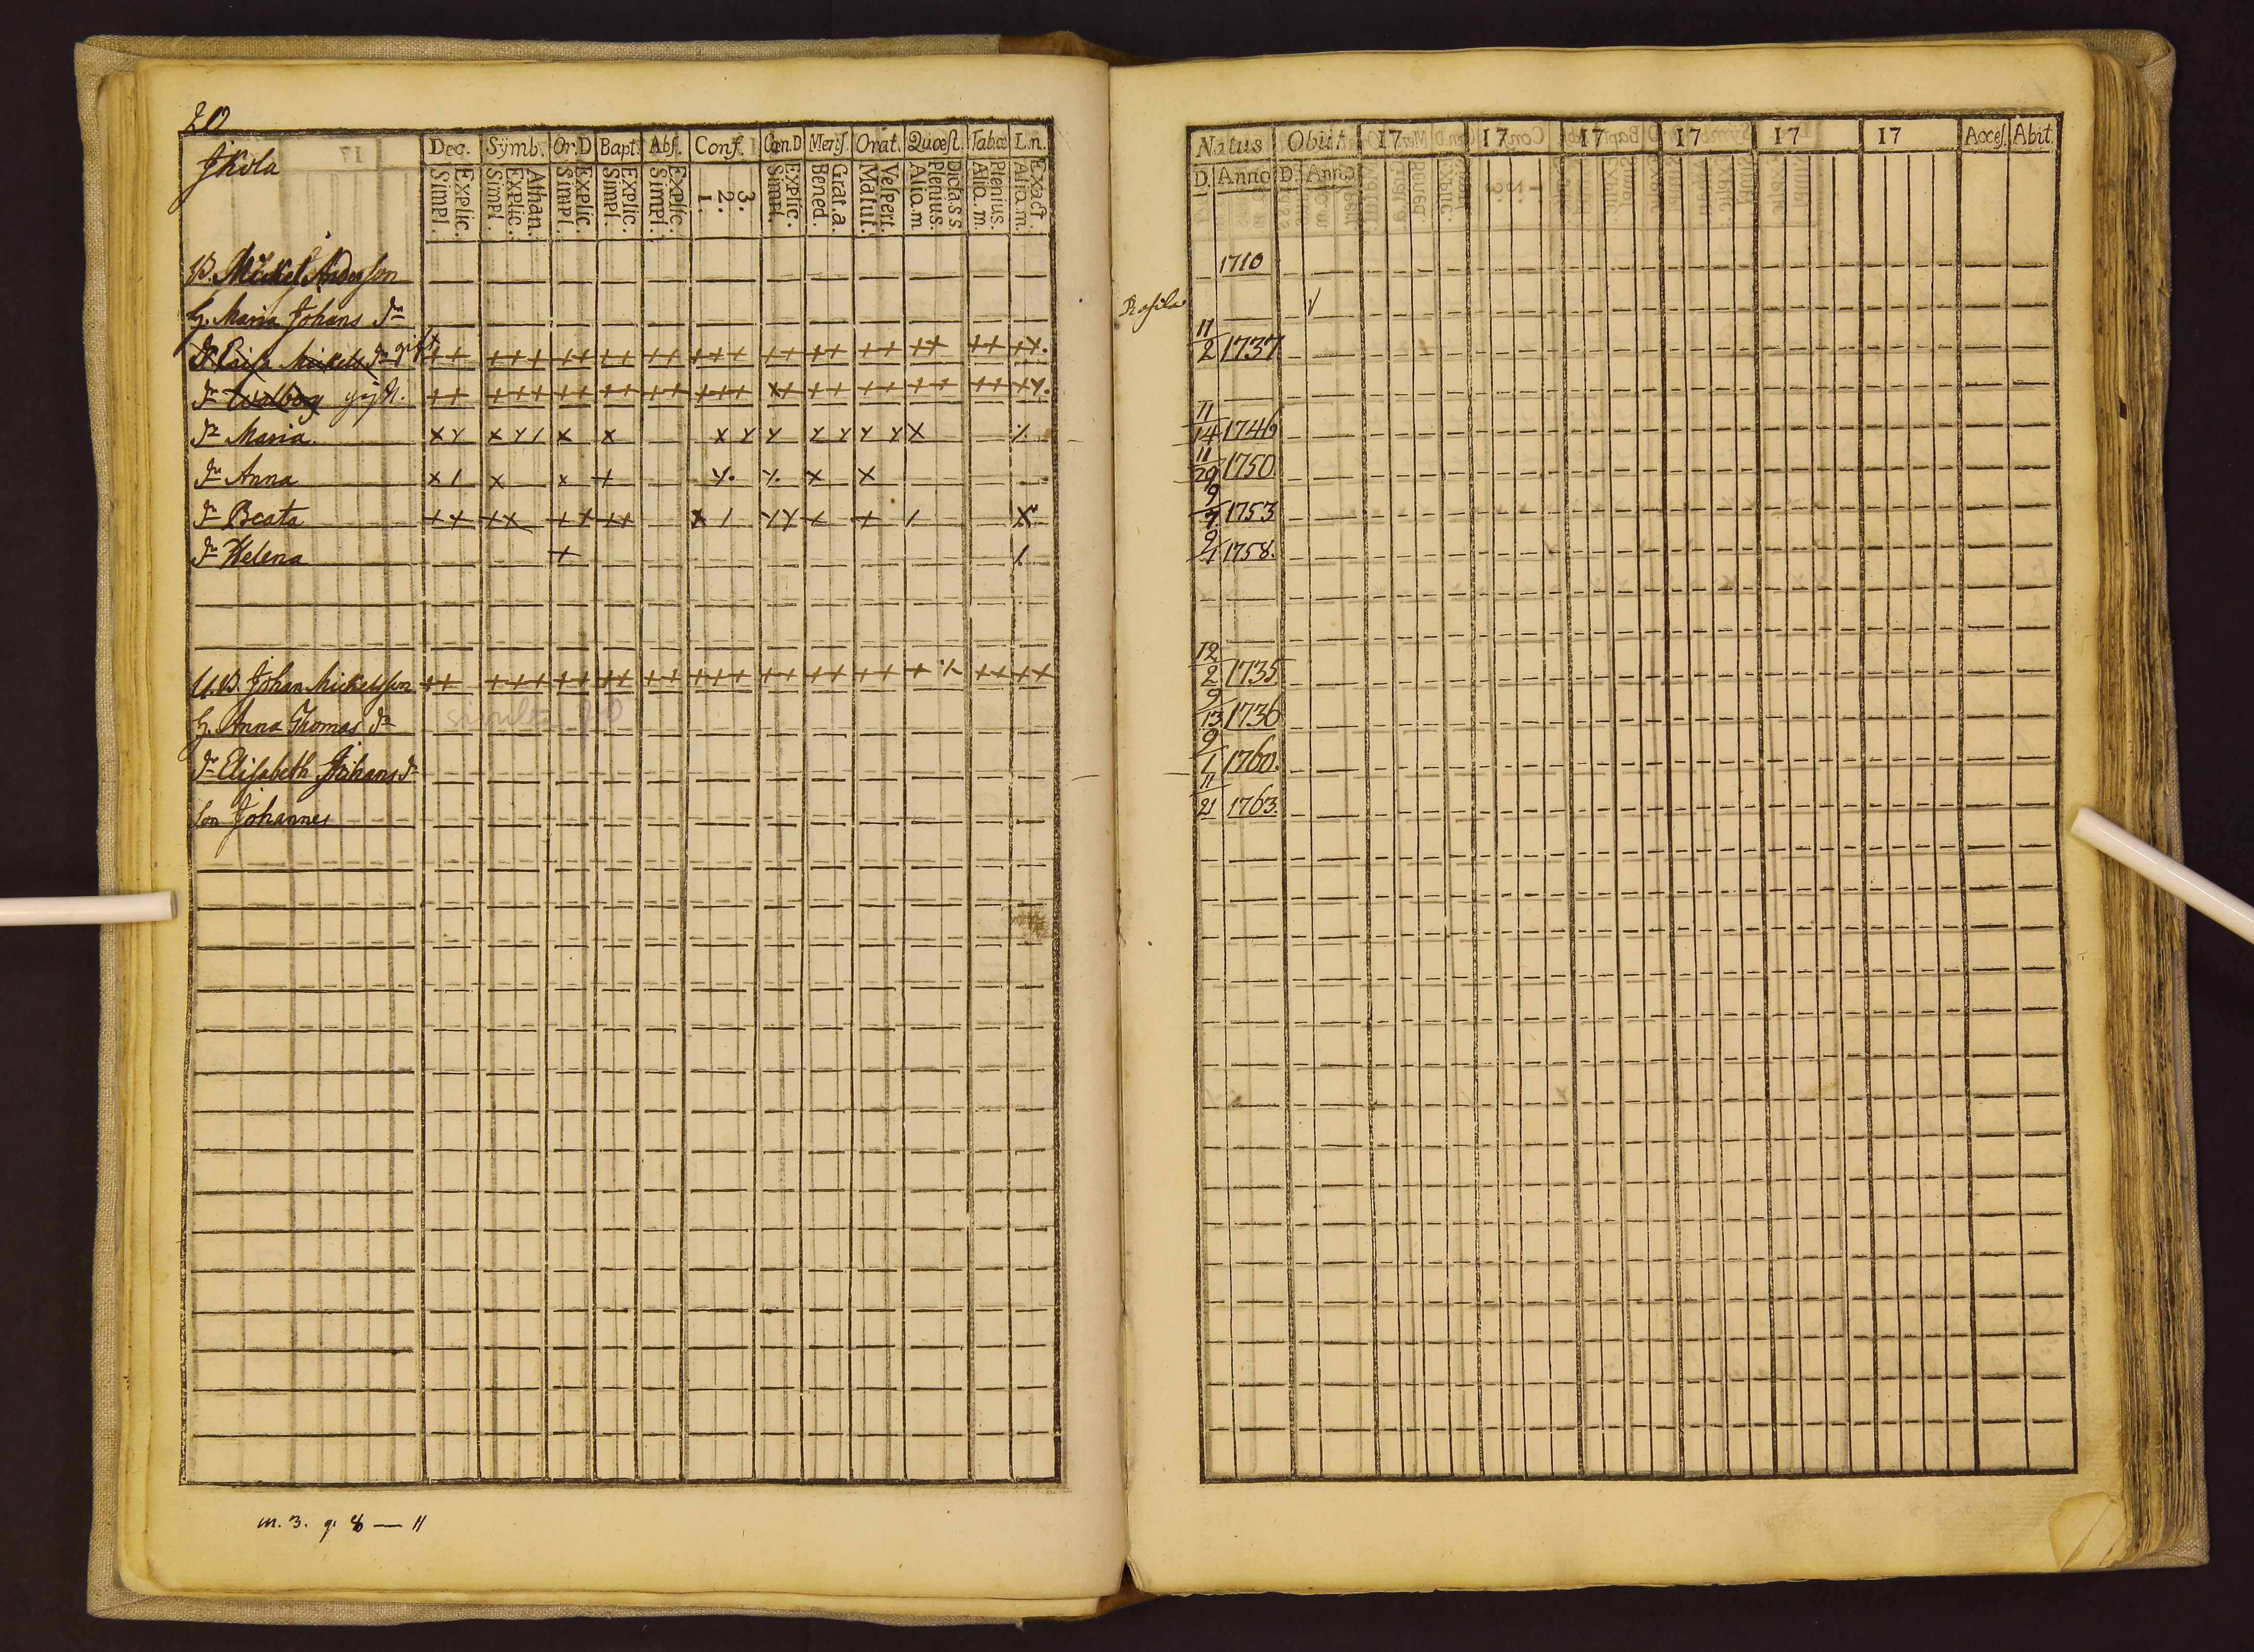 20
Jkola
Dec. Symb. Or.D Bapt. Abs. Conf. Cœn.D Mens. Orat. Quæst. Tabæ L.n.
Simpl. Explic. Simpl. Explic. Athan. Simpl. Explic. Simpl. Explic. Simpl. Explic. 1. 2. 3. Simpl. Explic. Bened. Grat.a. Matut. Vespert. Alio.m Plenius. Dicta.s.s Alio.m. Plenius. Alio.m. Exact.
B. Mickel Andersson
H. Maria Johans dr
dr Caisa Mickels dr gift ++ +++ ++ ++ ++ +++ ++ ++ ++ ++ ++ ++.
dr Walborg gift. ++ +++ ++ ++ ++ +++ x+ ++ ++ ++ ++ ++.
dr Maria.
dr Anna
dr Beata
dr Helena
U.B. Johan Mickelsson ++ +++ ++ ++ ++ +++ ++ ++ ++ + ++ ++
H. Anna Thomas dr
dr Elisabeth Johans dr
Son Johannes
m. 3. q. 8 — 11
Natus Obiit 17 17 17 17 17 17 Acces. Abit.
D. Anno D. Anno
1710
11/2 1737
11/14 1746
11/29 1750
9/7 1753
9/4 1758.
12/2 1735
9/13 1736
9/1 1760.
11/21 1763.